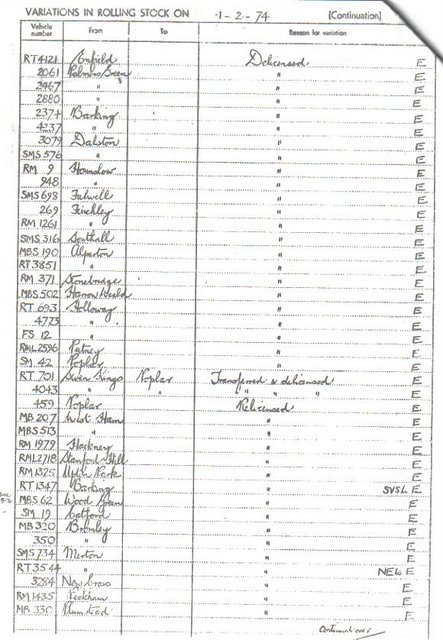 VARIATIONS IN ROLLING STOCK ON 1-2-74 [Continuation]
Vehicle number From To Reason for variation
RT4121 Enfield Delicensed E
2061 Palmers Green " E
2467 " " E
2880 " " E
2374 Barking " E
4237 " " E
3079 Dalston " E
SMS 576 " " E
RM 9 Hounslow " E
948 " " E
SMS 698 Fulwell " E
269 Finchley " E
RM 1261 " " E
SMS 316 Southall " E
MBS 190 Alperton " E
RT 3851 " " E
RM 371 Stonebridge " E
MBS 502 Harrow Weald " E
RT 693 Holloway " E
4773 " " E
FS 12 " " E
RML 2596 Putney " E
SM 42 Poplar " E
RT 701 Seven Kings Poplar Transferred & delicensed E
4043 " " " " " E
459 Poplar Relicensed E
MB 207 West Ham " E
MBS 513 " " E
RM 1979 Hackney " E
RML 2718 Stamford Hill " E
RM 1325 Upton Park " E
RT 1347 Barking " SVSL E
MBS 62 Wood Green " E
SM 19 Catford " E
MB 320 Bromley " E
350 " " E
SMS 734 Merton " E
RT 3544 " " NEL E
3284 New Cross " E
RM 1435 Peckham " E
MB 330 Plumstead " E
Continued over